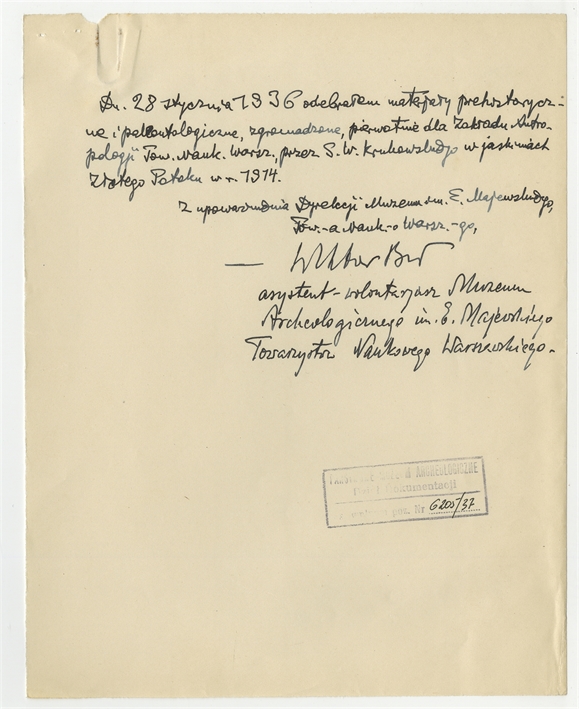 Dn. 28 stycznia 1936 odebrałem materjały prehistorycz-
ne i paleontologiczne, zgromadzone, pierwotnie dla Zakładu Antro-
pologji Tow. Nauk. Warsz. przez S. W. Krukowskiego w jaskiniach
Złotego Potoku w r. 1914.
Z upoważnienia Dyrekcji Muzeum im. E. Majewskiego,
Tow-a Nauk-o Warsz.-go,
asystent-wolontarjusz Muzeum
Archeologicznego im. E. Majewskiego
Towarzystw Naukowego Warszawskiego.
PAŃSTWOWE MUZEUM ARCHEOLOGICZNE
Dokumentacji
poz. Nr 6205/37